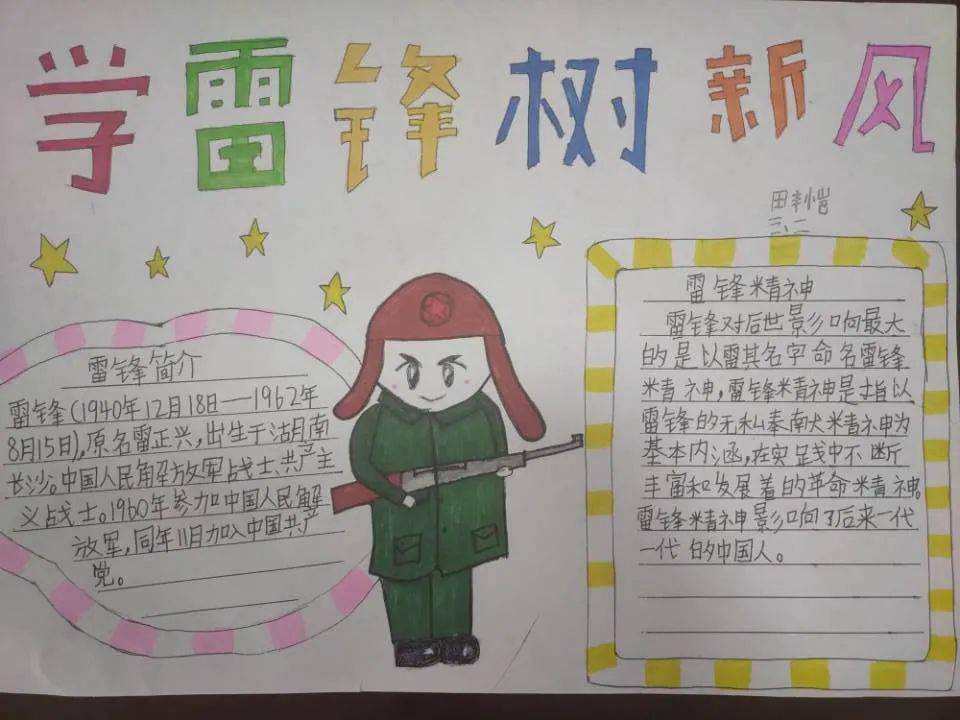 学雷锋树新风
田丰恺
三、二
雷锋简介
雷锋(1940年12月18日——1962年
8月15日),原名雷正兴,出生于湖南
长沙。中国人民解放军战士、共产主
义战士。1960年参加中国人民解
放军,同年11月加入中国共产
党。
雷锋精神
雷锋对后世影响最大
的是以雷其名字命名雷锋
精神,雷锋精神是指以
雷锋的无私奉献精神为
基本内涵,在实践中不断
丰富和发展着的革命精神。
雷锋精神影响了后来一代
一代的中国人。